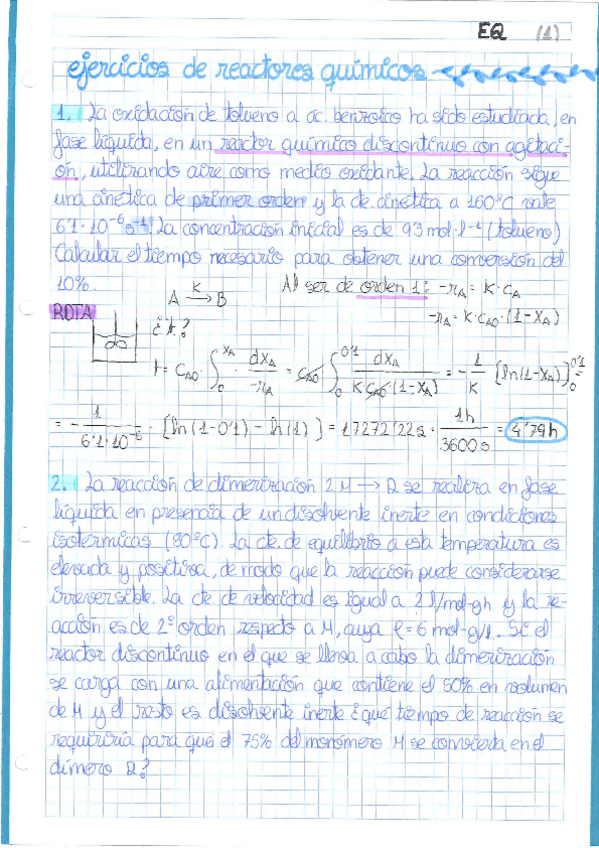 EQ (1)
ejercicios de reactores químicos
1. La oxidación de tolueno a ác. benzoico ha sido estudiada, en
fase líquida, en un reactor químico discontinuo con agitaci-
ón, utilizando aire como medio oxidante. La reacción sigue
una cinética de primer orden y la cte. cinética a 160°C vale
6'1·10⁻⁶ s⁻¹. La concentración inicial es de 9'3 mol·l⁻¹ (tolueno)
Calcular el tiempo necesario para obtener una conversión del
10%.
A —K→ B Al ser de orden 1: -rA = K·CA
RDTA ¿t? -rA = K·CA0·(1-XA)
t = CA0·∫₀^XA dXA/-rA = CA0 ∫₀^0'1 dXA/K·CA0·(1-XA) = -1/K [ln(1-XA)]₀^0'1 =
= -1/6'1·10⁻⁶ · [ln(1-0'1) - ln(1)] = 17272'22s · 1h/3600s = 4'79h
2. La reacción de dimerización 2M → D se realiza en fase
líquida en presencia de un disolvente inerte en condiciones
isotérmicas (80°C). La cte. de equilibrio a esta temperatura es
elevada y positiva, de modo que la reacción puede considerarse
irreversible. La cte de velocidad es igual a ? l/mol-gh y la re-
acción es de 2º orden respecto a M, cuya ρ=6 mol-g/l. Si el
reactor discontinuo en el que se lleva a cabo la dimerización
se carga con una alimentación que contiene el 50% en volumen
de M y el resto es disolvente inerte ¿qué tiempo de reacción se
requiriría para que el 75% del monómero M se convierta en el
dímero D?